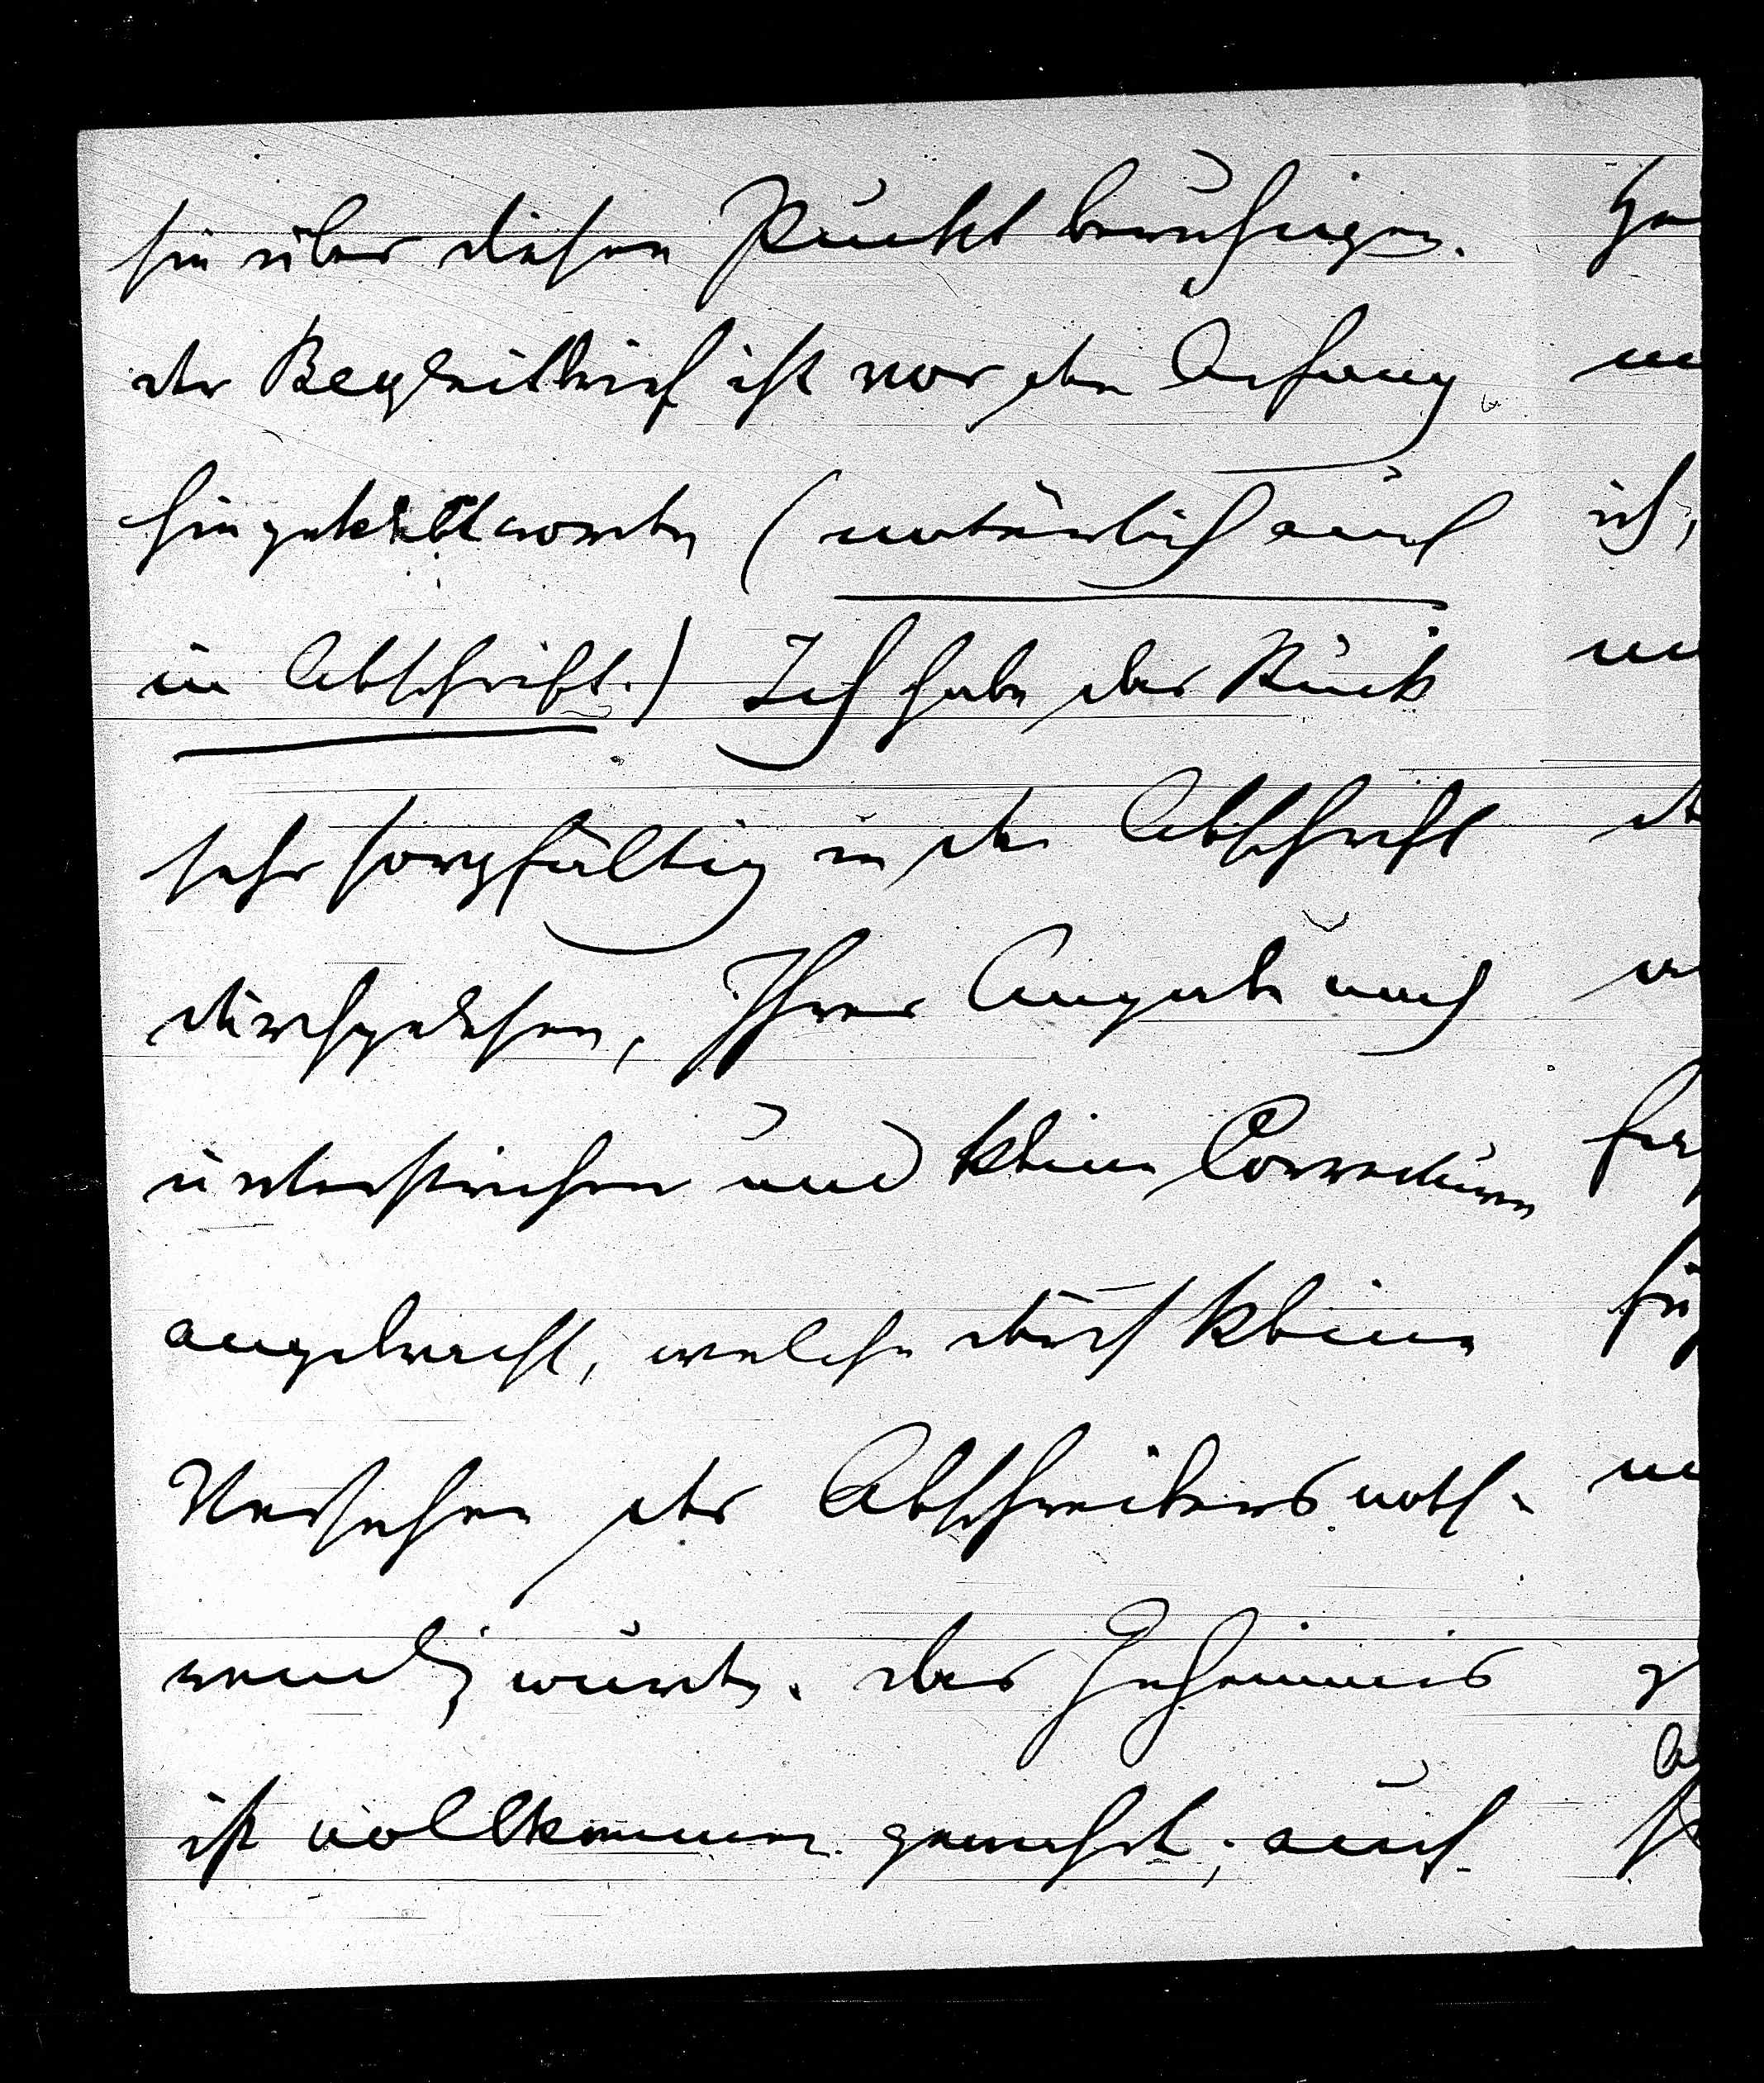 sie über diesen Punkt beruhigen.
der Begleitbrief ist vor den Anfang
hingeklebt worden (natürlich auch
in Abschrift.) Ich habe das Stück
sehr sorgfältig in der Abschrift
durchgelesen, Ihrer Angabe nach
unterstrichen und kleine Correcturen
angebracht, welche durch kleine
Versehen des Abschreibers noth-
wendig wurden. das Geheimnis
ist vollkommen gewahrt; auch